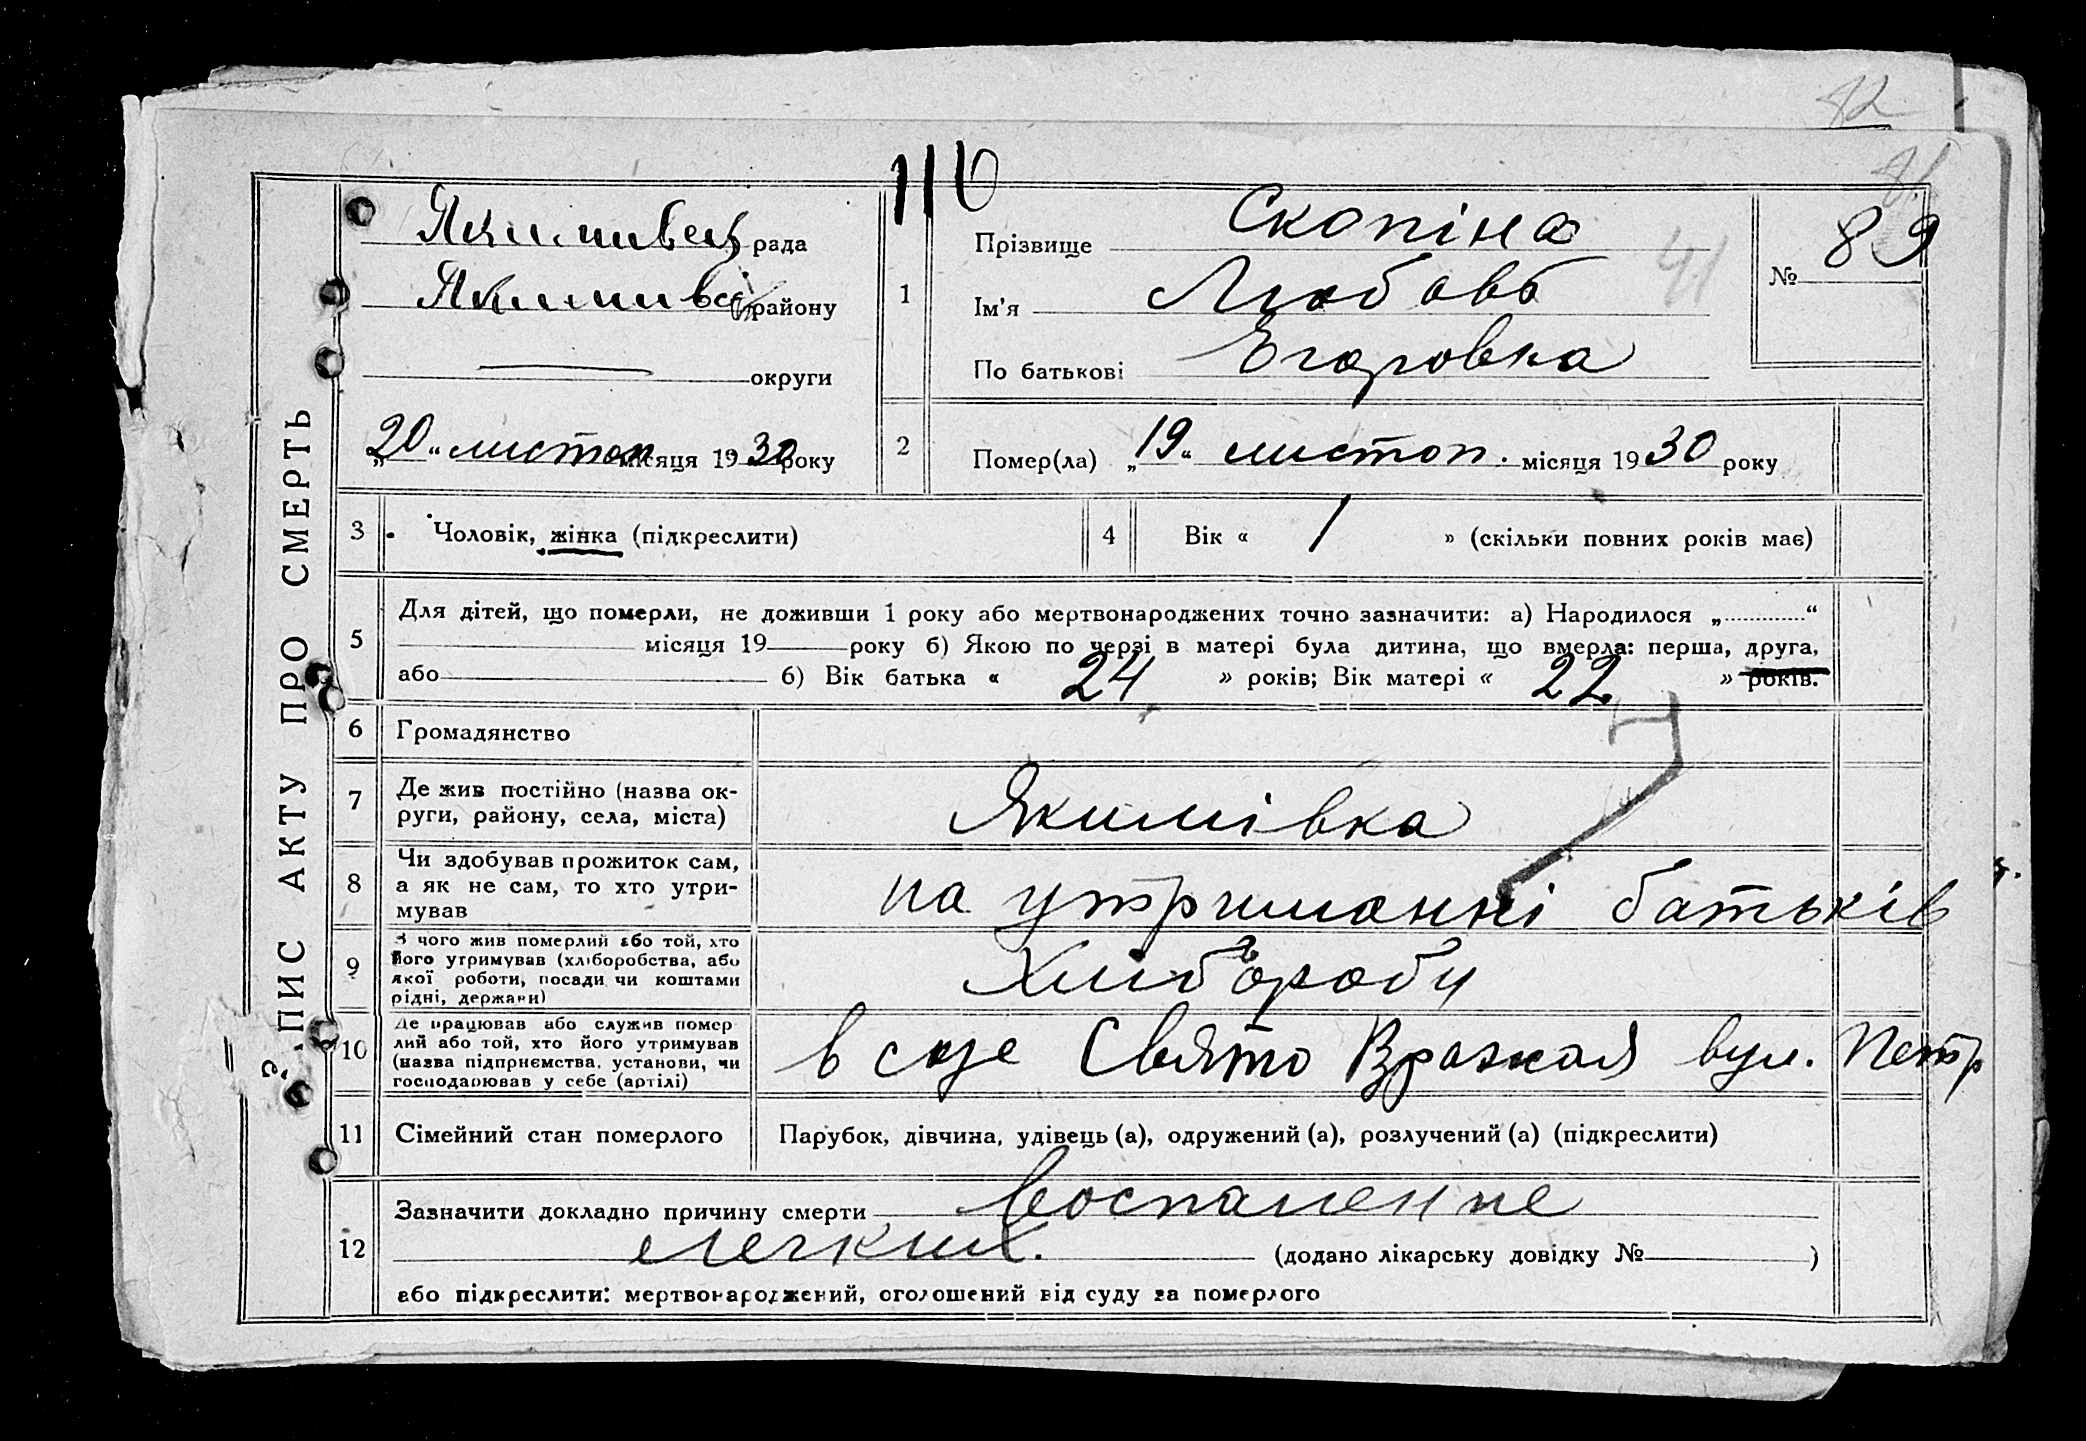 82
81.
116
ЗАПИС АКТУ ПРО СМЕРТЬ
Якимивец рада
Якимивс району
округи
„20“ листоп місяця 1930 року
1 Прізвище Скопіна
41
Ім'я Любовь
По батькові Егоровна
№ 89
2 Помер(ла) „19“ листоп. місяця 1930 року
3 Чоловік, жінка (підкреслити)
4 Вік « 1 » (скільки повних років має)
5 Для дітей, що померли, не доживши 1 року або мертвонароджених точно зазначити: а) Народилося „ “
місяця 19 року б) Якою по черзі в матері була дитина, що вмерла: перша, друга,
або б) Вік батька « 24 » років; Вік матері « 22 » років.
6 Громадянство
7 Де жив постійно (назва ок-
руги, району, села, міста)
Якимівка
8 Чи здобував прожиток сам,
а як не сам, то хто утри-
мував
на утриманні батьків
9 З чого жив померлий або той, хто
його утримував (хліборобства, або
якої роботи, посади чи коштами
рідні, держави)
Хліборобу
10 Де працював або служив помер
лий або той, хто його утримував
(назва підприємства, установи, чи
господарював у себе (артілі)
в сузе Свято вул. Петр
11 Сімейний стан померлого
Парубок, дівчина, удівець (а), одружений (а), розлучений (а) (підкреслити)
12 Зазначити докладно причину смерти воспаление
легких. (додано лікарську довідку № )
або підкреслити: мертвонароджений, оголошений від суду за померлого